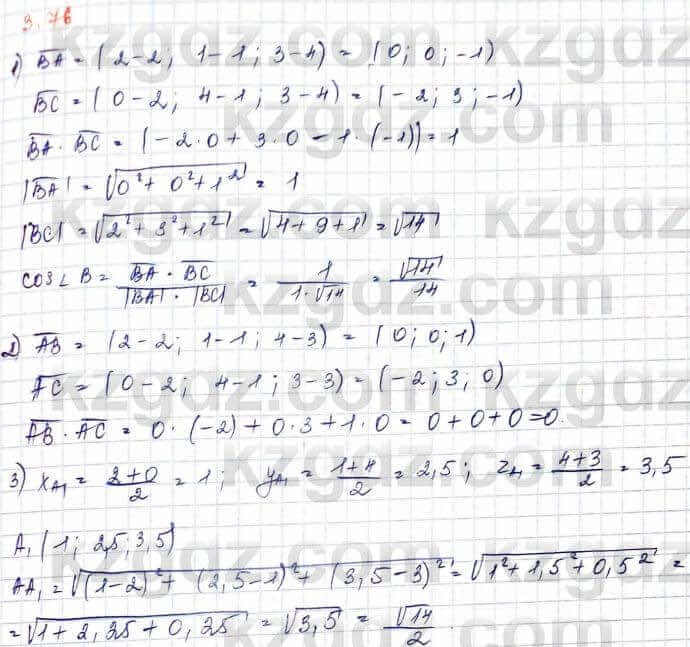 3.76
1) BA = (2-2; 1-1; 3-4) = (0; 0; -1)
BC = (0-2; 4-1; 3-4) = (-2; 3; -1)
BA · BC = (-2·0 + 3·0 - 1·(-1)) = 1
|BA| = √0² + 0² + 1² = 1
|BC| = √2² + 3² + 1² = √4 + 9 + 1 = √14
cos∠B = BA · BC / |BA| · |BC| = 1 / 1·√14 = √14 / 14
2) AB = (2-2; 1-1; 4-3) = (0; 0; 1)
AC = (0-2; 4-1; 3-3) = (-2; 3; 0)
AB · AC = 0·(-2) + 0·3 + 1·0 = 0 + 0 + 0 = 0.
3) x_A₁ = 2+0 / 2 = 1; y_A₁ = 1+4 / 2 = 2,5; z_A₁ = 4+3 / 2 = 3,5
A₁ (1; 2,5; 3,5)
AA₁ = √(1-2)² + (2,5-1)² + (3,5-3)² = √1² + 1,5² + 0,5² =
= √1 + 2,25 + 0,25 = √3,5 = √14 / 2.
kzgdz.com